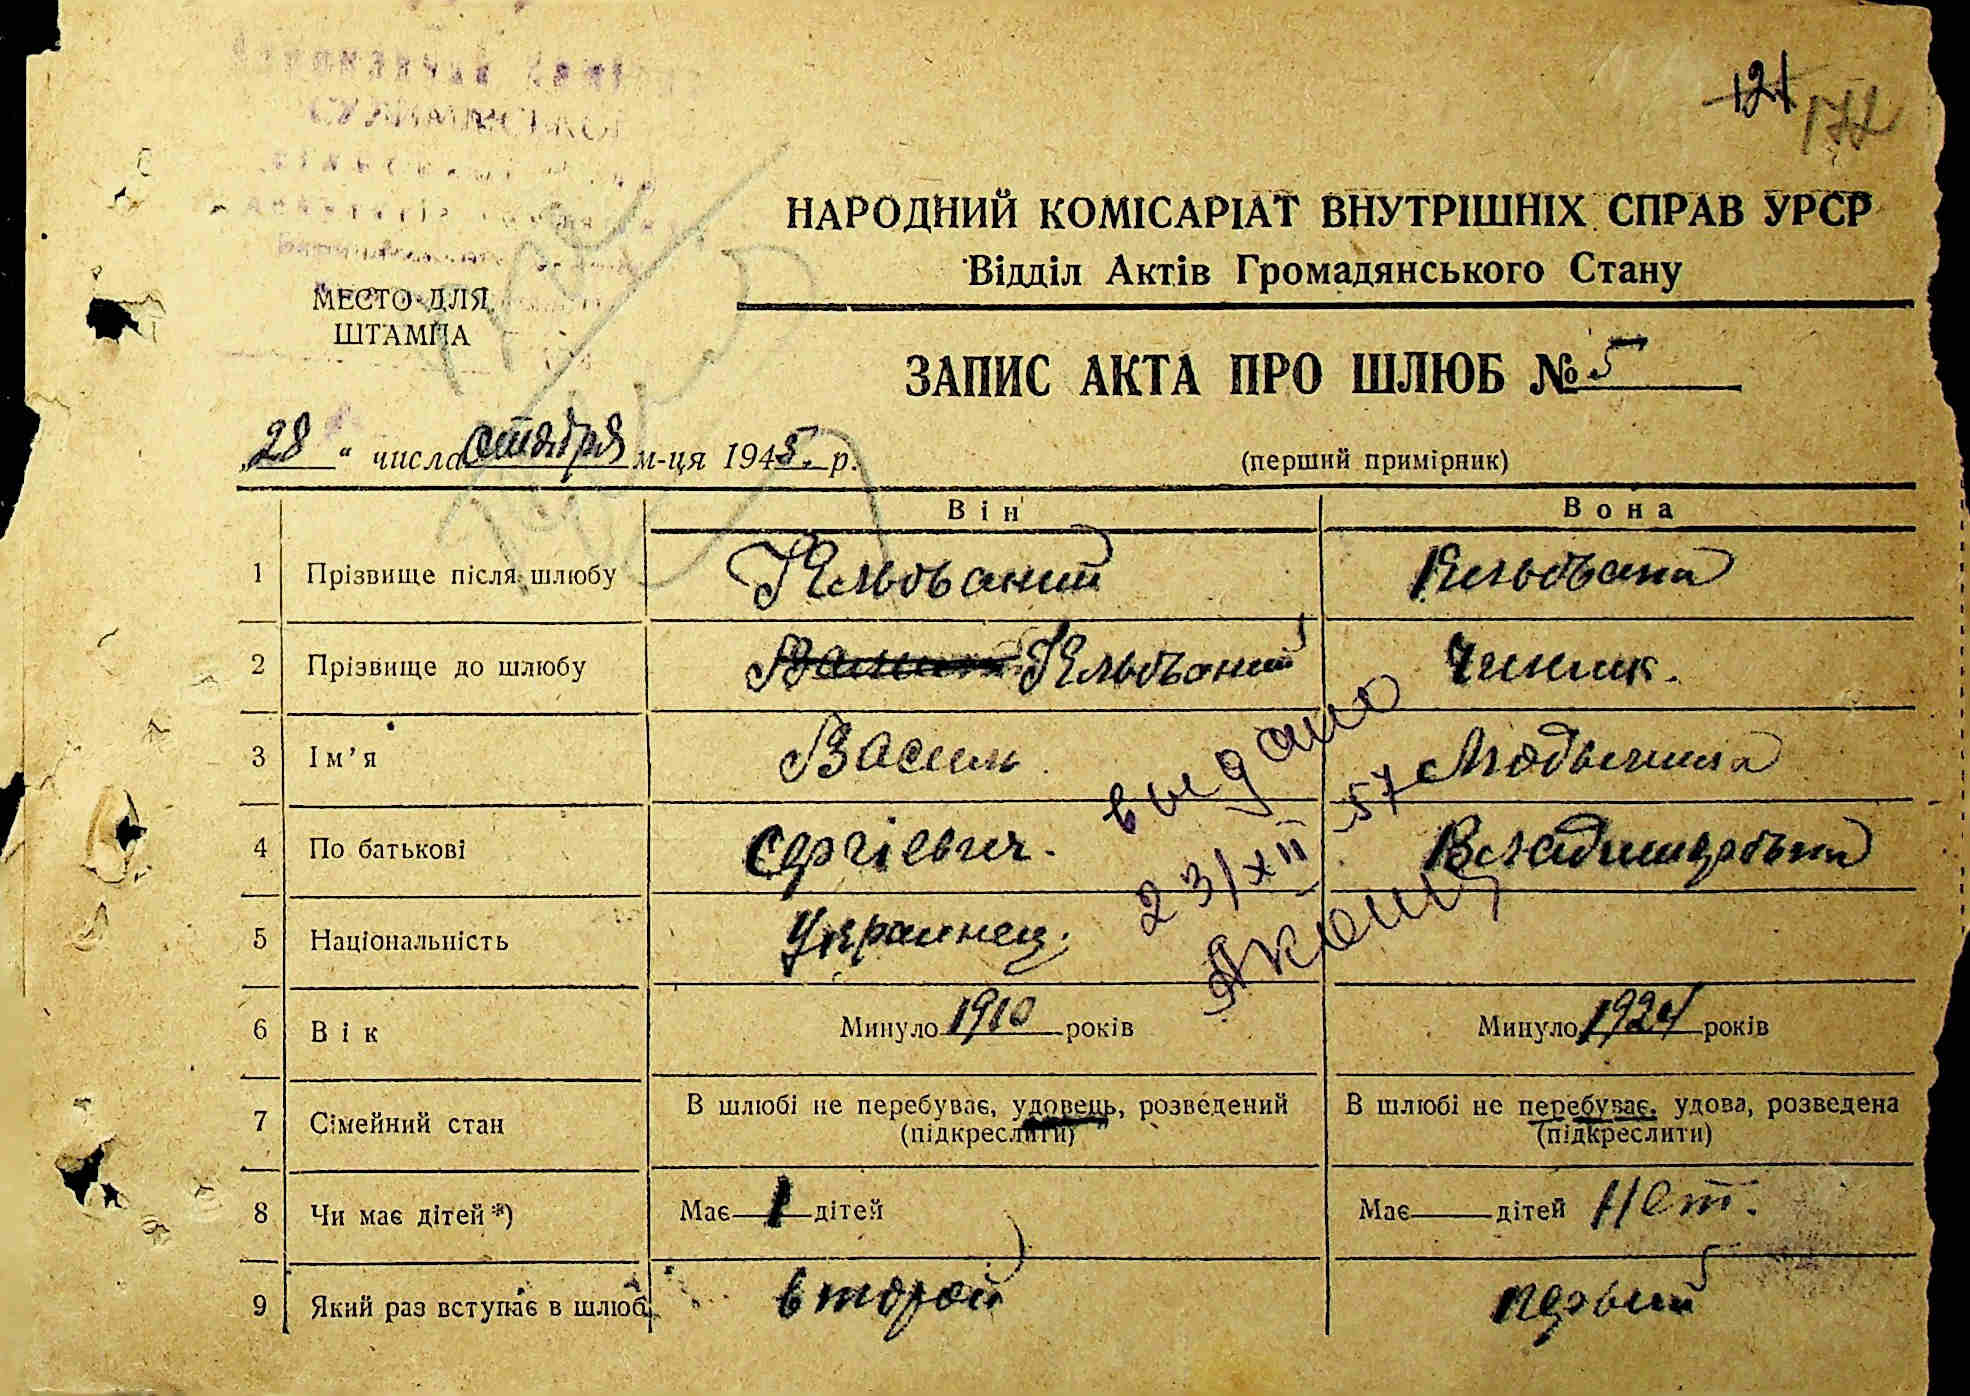 121 172
НАРОДНИЙ КОМІСАРІАТ ВНУТРІШНІХ СПРАВ УРСР
Відділ Актів Громадянського Стану
МЕСТО ДЛЯ
ШТАМПА
ЗАПИС АКТА ПРО ШЛЮБ № 5
„28“ числа октября м-ця 1945. р.
(перший примірник)
Він Вона
1 Прізвище після шлюбу
2 Прізвище до шлюбу
3 Ім'я Василь Людмила
4 По батькові Сергіевич. Владимировна
5 Національність Украинец.
видано
23/XII-57
6 Вік Минуло 1910 років Минуло 1924 років
7 Сімейний стан В шлюбі не перебуває, удовець, розведений В шлюбі не перебуває, удова, розведена
(підкреслити) (підкреслити)
8 Чи має дітей*) Має 1 дітей Має — дітей Нет.
9 Який раз вступає в шлюб второй первый